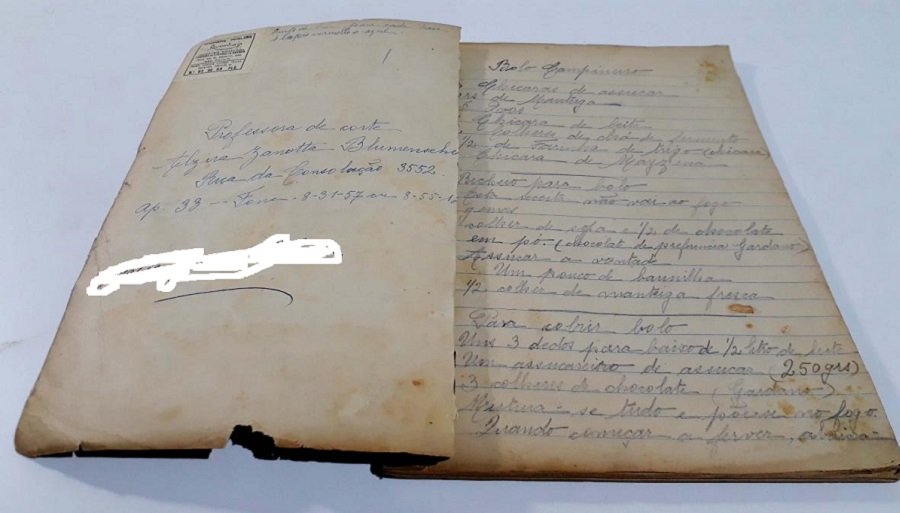 1
Professora de corte
Zanotta
Rua da Consolação 3552
ap. 33 - Fone - 8-31-57 ou 8-55-12
Bolo Campineiro
chicaras de assucar
de Manteiga
Ovos
Chicara de leite
colheres de chá de fermento
1/2 de Farinha de trigo (chicara)
Chicara de Mayzena
Recheio para bolo
Esta receita não vai ao fogo
gemas
colher de sopa e 1/2 de chocolate
em pó. (chocolat de preferencia Gardano)
Assucar a vontade
Um pouco de baunilha
1/2 colher de manteiga fresca
Para cobrir bolo
Uns 3 dedos para baixo d 1/2 litro de leite
Um assucareiro de assucar (250 grs)
3 colheres de chocolate (Gardano)
Mistura-se tudo e põe-se no fogo.
Quando começar a ferver,